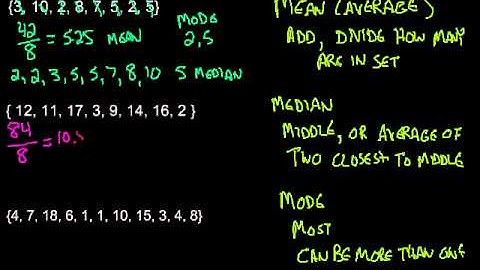 {3, 10, 2, 8, 7, 5, 2, 5}
42/8 = 5.25 MEAN
MODE
2,5
2, 2, 3, 5, 5, 7, 8, 10 5 MEDIAN
{ 12, 11, 17, 3, 9, 14, 16, 2 }
84/8 = 10.
{4, 7, 18, 6, 1, 1, 10, 15, 3, 4, 8}
MEAN (AVERAGE)
ADD, DIVIDE HOW MANY
ARE IN SET
MEDIAN
MIDDLE, OR AVERAGE OF
TWO CLOSEST TO MIDDLE
MODE
MOST
CAN BE MORE THAN ONE